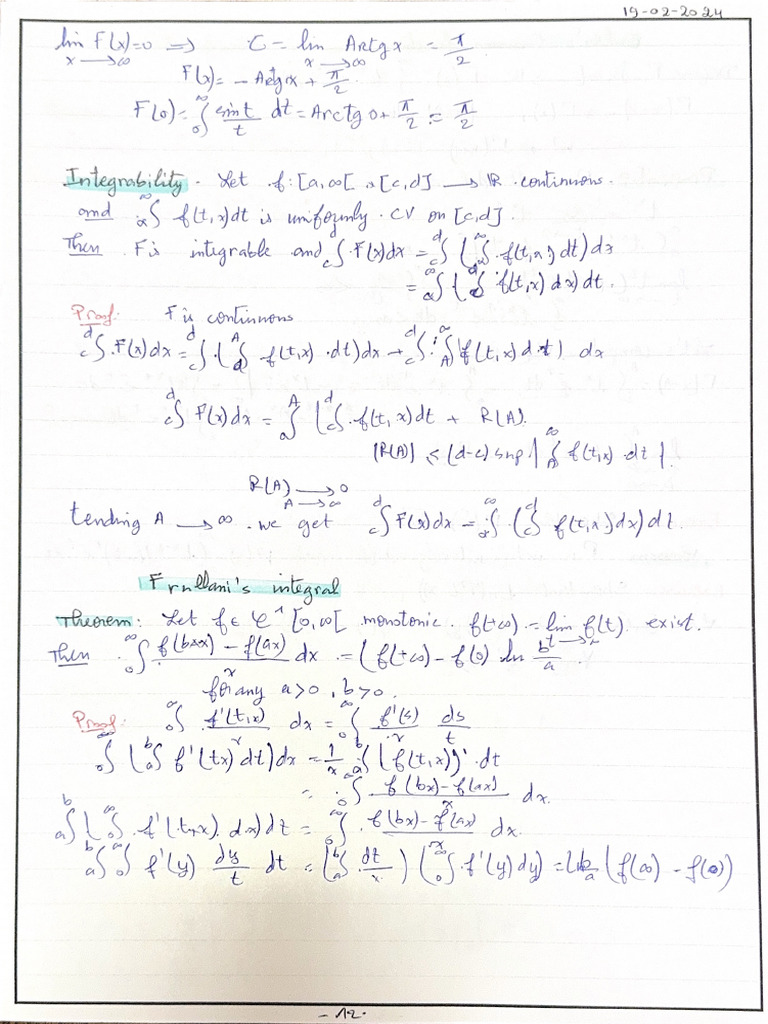 19-02-2024
lim F(x)=0 ⟹ C = lim Arctg x = π/2
x⟶∞ x⟶∞
F(x) = - Arctgx + π/2
F(0) = ₀∫^∞ sint/t dt = Arctg 0 + π/2 = π/2
Integrability. Let f: [a, ∞[ × [c,d] ⟶ ℝ continuous.
and ₐ∫^∞ f(t,x)dt is uniformly CV on [c,d].
Then F is integrable and c∫^d F(x)dx = c∫^d (ₐ∫^∞ f(t,x) dt) dx
= ₐ∫^∞ (c∫^d f(t,x) dx) dt.
Proof: F is continuous
c∫^d F(x)dx = c∫^d (ₐ∫^A f(t,x) dt) dx + c∫^d (A∫^∞ f(t,x) dt) dx
c∫^d F(x)dx = ₐ∫^A (c∫^d f(t,x)dt + R(A).
|R(A)| ≤ (d-c) sup | A∫^∞ f(t,x) dt |.
R(A) ⟶ 0
A⟶∞
tending A ⟶ ∞ we get c∫^d F(x)dx = ₐ∫^∞ (c∫^d f(t,x)dx) dt.
Frullani's integral
Theorem: Let f ∈ 𝒞¹ [0,∞[ monotonic. f(+∞) = lim f(t) exist.
t⟶
Then ₀∫^∞ f(bx) - f(ax)/x dx = (f(+∞) - f(0)) ln b/a.
for any a>0, b>0.
Proof: ₀∫^∞ f'(t,x) dx = ₀∫^∞ f'(s) ds/t
₀∫^∞ (ₐ∫^b f'(tx) dt) dx = 1/x ₐ∫^b (f(t,x))' dt
= ₀∫^∞ f(bx) - f(ax)/x dx.
ₐ∫^b (₀∫^∞ f'(t,x) dx) dt = ₀∫^∞ f(bx) - f(ax)/x dx.
ₐ∫^b ₀∫^∞ f'(y) dy/t dt = (ₐ∫^b dt/x) (₀∫^∞ f'(y) dy) = ln b/a (f(∞) - f(0))
- 12 -